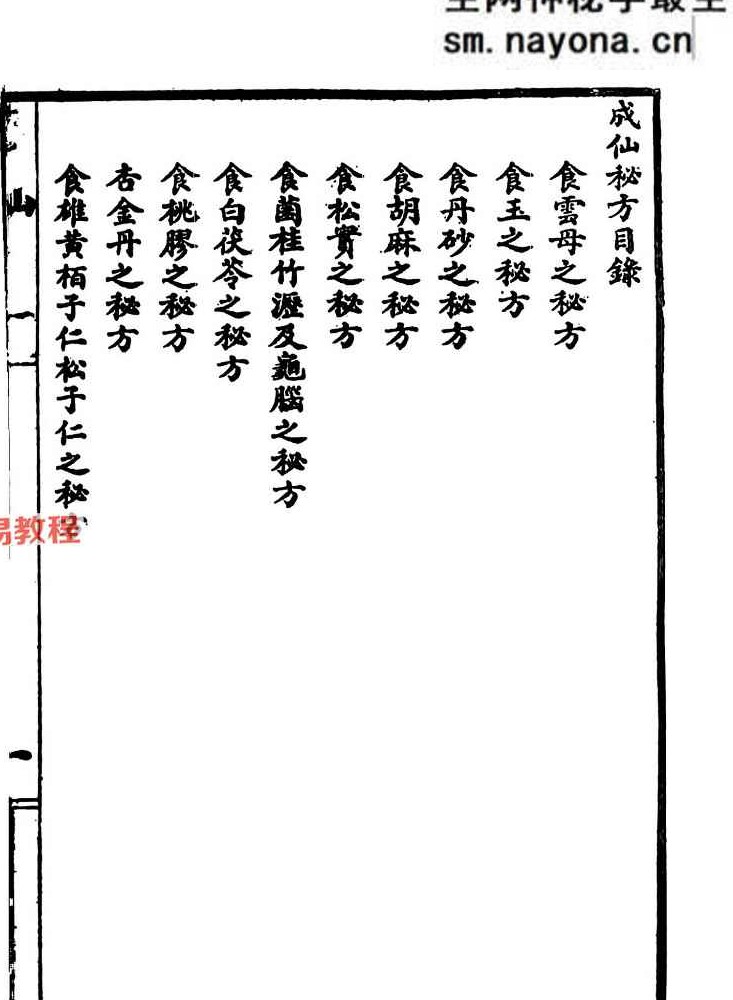 sm.nayona.cn
成仙秘方目錄
食雲母之秘方
食玉之秘方
食丹砂之秘方
食胡麻之秘方
食松實之秘方
食菌桂竹瀝及龜腦之秘方
食白茯苓之秘方
食桃膠之秘方
杏金丹之秘方
食雄黄栢子仁松子仁之秘
山
一
易教程